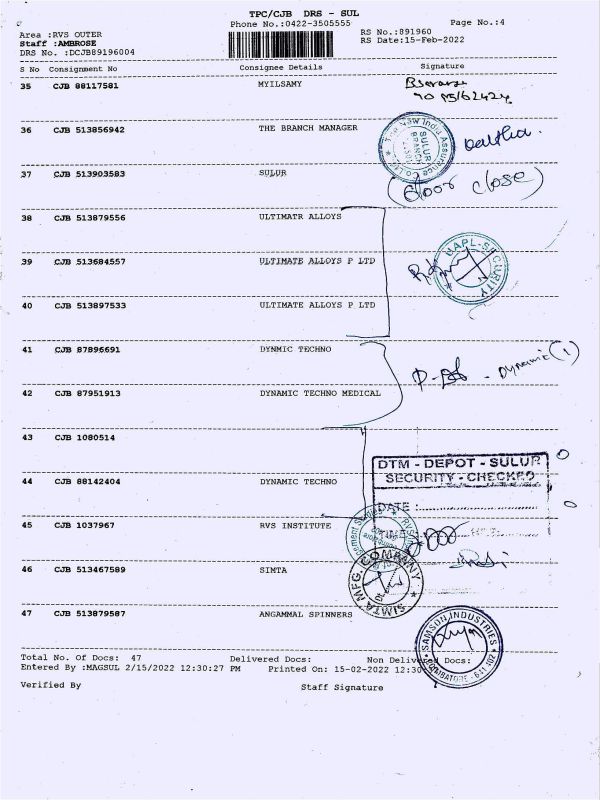 TPC/CJB DRS - SUL
Phone No.:0422-3505555
Page No.:4
Area :RVS OUTER
Staff :AMBROSE
DRS No. :DCJB89196004
RS No.:891960
RS Date:15-Feb-2022
S No Consignment No Consignee Details Signature
35 CJB 88117581 MYILSAMY
36 CJB 513856942 THE BRANCH MANAGER
The New India Assurance Co Ltd
SULUR
BRANCH
37 CJB 513903583 SULUR
(Door close)
38 CJB 513879556 ULTIMATR ALLOYS
39 CJB 513684557 ULTIMATE ALLOYS P LTD
UAPL-SECURITY
40 CJB 513897533 ULTIMATE ALLOYS P LTD
41 CJB 87896691 DYNMIC TECHNO
Dynamic (1)
42 CJB 87951913 DYNAMIC TECHNO MEDICAL
43 CJB 1080514
DTM - DEPOT - SULUR
SECURITY - CHECKED
44 CJB 88142404 DYNAMIC TECHNO
DATE :
45 CJB 1037967 RVS INSTITUTE
46 CJB 513467589 SIMTA
SIMTA MFG. COMPANY
47 CJB 513879587 ANGAMMAL SPINNERS
SAMSON INDUSTRIES
COIMBATORE - 641 402
Total No. Of Docs: 47 Delivered Docs: Non Delivered Docs:
Entered By :MAGSUL 2/15/2022 12:30:27 PM Printed On: 15-02-2022 12:30
Verified By Staff Signature